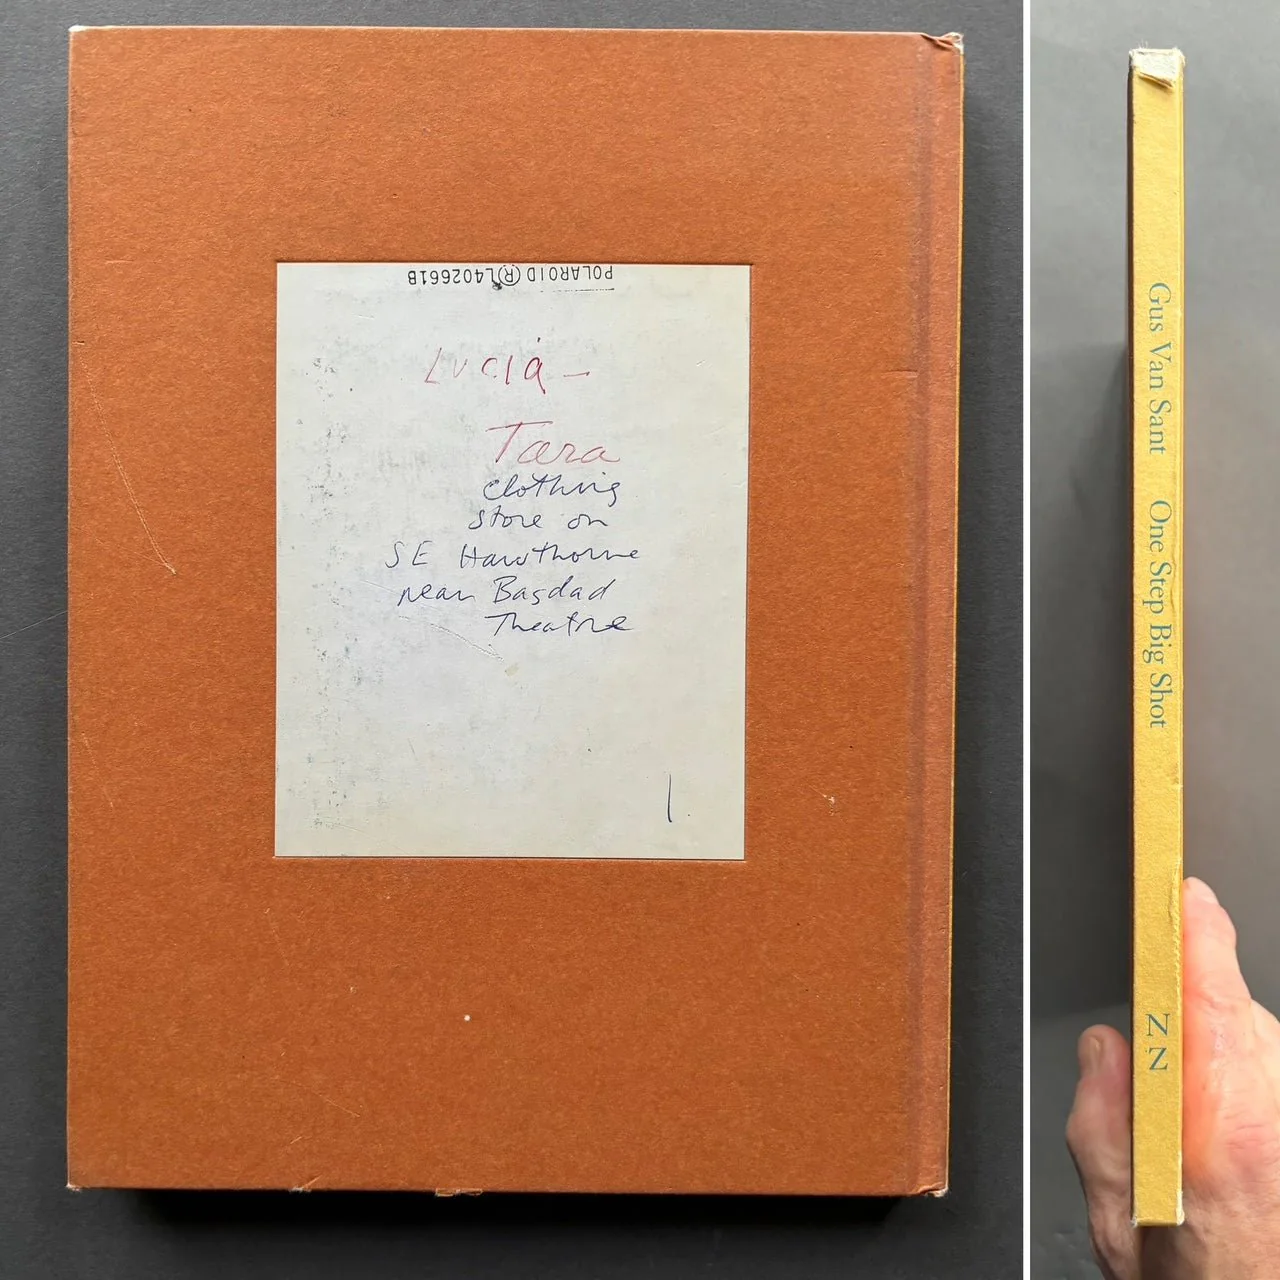 POLAROID ® L402661B
Lucia –
Tara
clothing
store on
SE Hawthorne
near Bagdad
Theatre
1.
Gus Van Sant One Step Big Shot
N
N